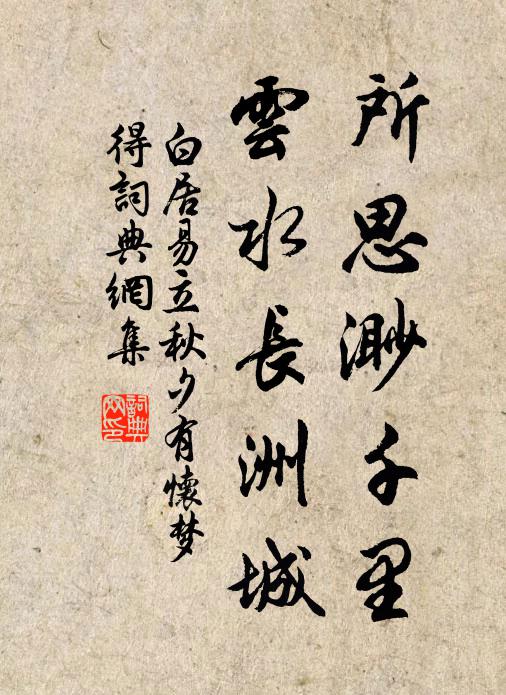 所思渺千里
雲水長洲城
白居易立秋夕有懷梦
得詞典網集
詞典
网印